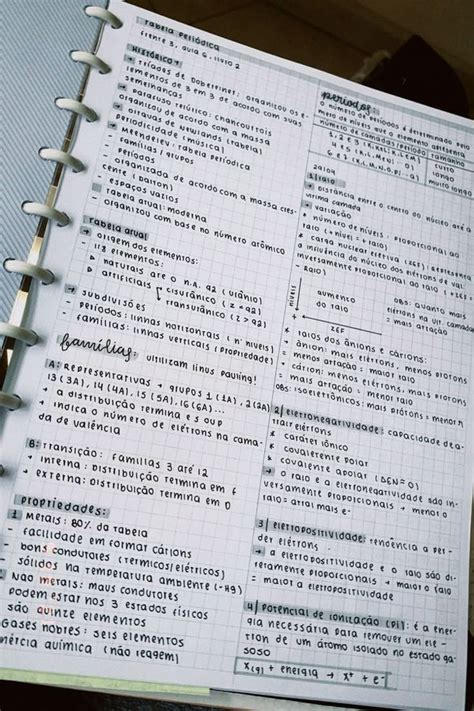 tabela periódica
frente 3, aula 6, livro 2
HISTÓRICO
→ tríades de Dobereiner: organizou os e-
lementos de 3 em 3 de acordo com suas
semelhanças
→ parafuso telúrico: chancourtois
organizou de acordo com a massa
→ oitavas de newlands (tabela)
periodicidade (música)
→ Mendeleev: tabela periódica
- famílias / grupos
- períodos
- organizada de acordo com a massa cres-
cente (dalton)
- espaços vazios
→ tabela atual: moderna
- organizou com base no número atômico
tabela atual
→ origem dos elementos:
- 118 elementos:
naturais até o n.a. 92 (urânio)
artificiais cisurânico (z < 92)
transurânico (z > 92)
→ subdivisões
- períodos: linhas horizontais (nº níveis)
- famílias: linhas verticais (propriedade)
famílias: utilizam linus pauling!
A: Representativas → grupos 1 (1A), 2 (2A)
13 (3A), 14 (4A), 15 (5A), 16 (6A)...
+ a distribuição termina em s ou p
+ indica o número de elétrons na cama-
da de valência
B: Transição: famílias 3 até 12
+ interna: distribuição termina em f
+ externa: distribuição termina em D
propriedades:
1 Metais: 80% da tabela
- facilidade em formar cátions
- bons condutores (térmicos/elétricos)
- sólidos na temperatura ambiente (-Hg)
2 Não metais: maus condutores
podem estar nos 3 estados físicos
são quinze elementos
Gases nobres: seis elementos
inércia química (não reagem)
períodos:
o número de períodos é determinado pelo
número de níveis que o elemento apresenta
número de camadas/período tamanho
1, 2 e 3 (K, L, M) curto
4 e 5 longo
6 e 7 muito longo
1| raio
→ distância entre o centro do núcleo até a
última camada
→ variação
* número de níveis: proporcional ao
raio (+ nível = + raio)
* carga nuclear efetiva (ZEF): representa
a influência do núcleo dos elétrons de val.
inversamente proporcional ao raio (+ ZEF
- RAIO)
níveis
aumento
do raio
ZEF
OBS: quanto mais
elétrons na ult. camada
→ mais atração
* raios dos ânions e cátions:
- ânion: mais elétrons, menos prótons
= menos atração: maior raio
- cátion: menos elétrons, mais prótons
= mais atração: menor raio
OBS: isoeletrônicos: mais prótons = menor r.
2| eletronegatividade: capacidade de a-
trair elétrons
* caráter iônico
* covalente polar
* covalente apolar (ΔEN = 0)
→ o raio e a eletronegatividade são in-
versamente proporcionais → menor o
raio = atrai mais e⁻
3| eletropositividade: tendência a per-
der elétrons
→ a eletropositividade e o raio são di-
retamente proporcionais → maior o raio
= maior a eletropositividade
4| Potencial de ionização (PI): é a ener-
gia necessária para remover um elé-
tron de um átomo isolado no estado ga-
soso
X(g) + energia → X⁺ + e⁻